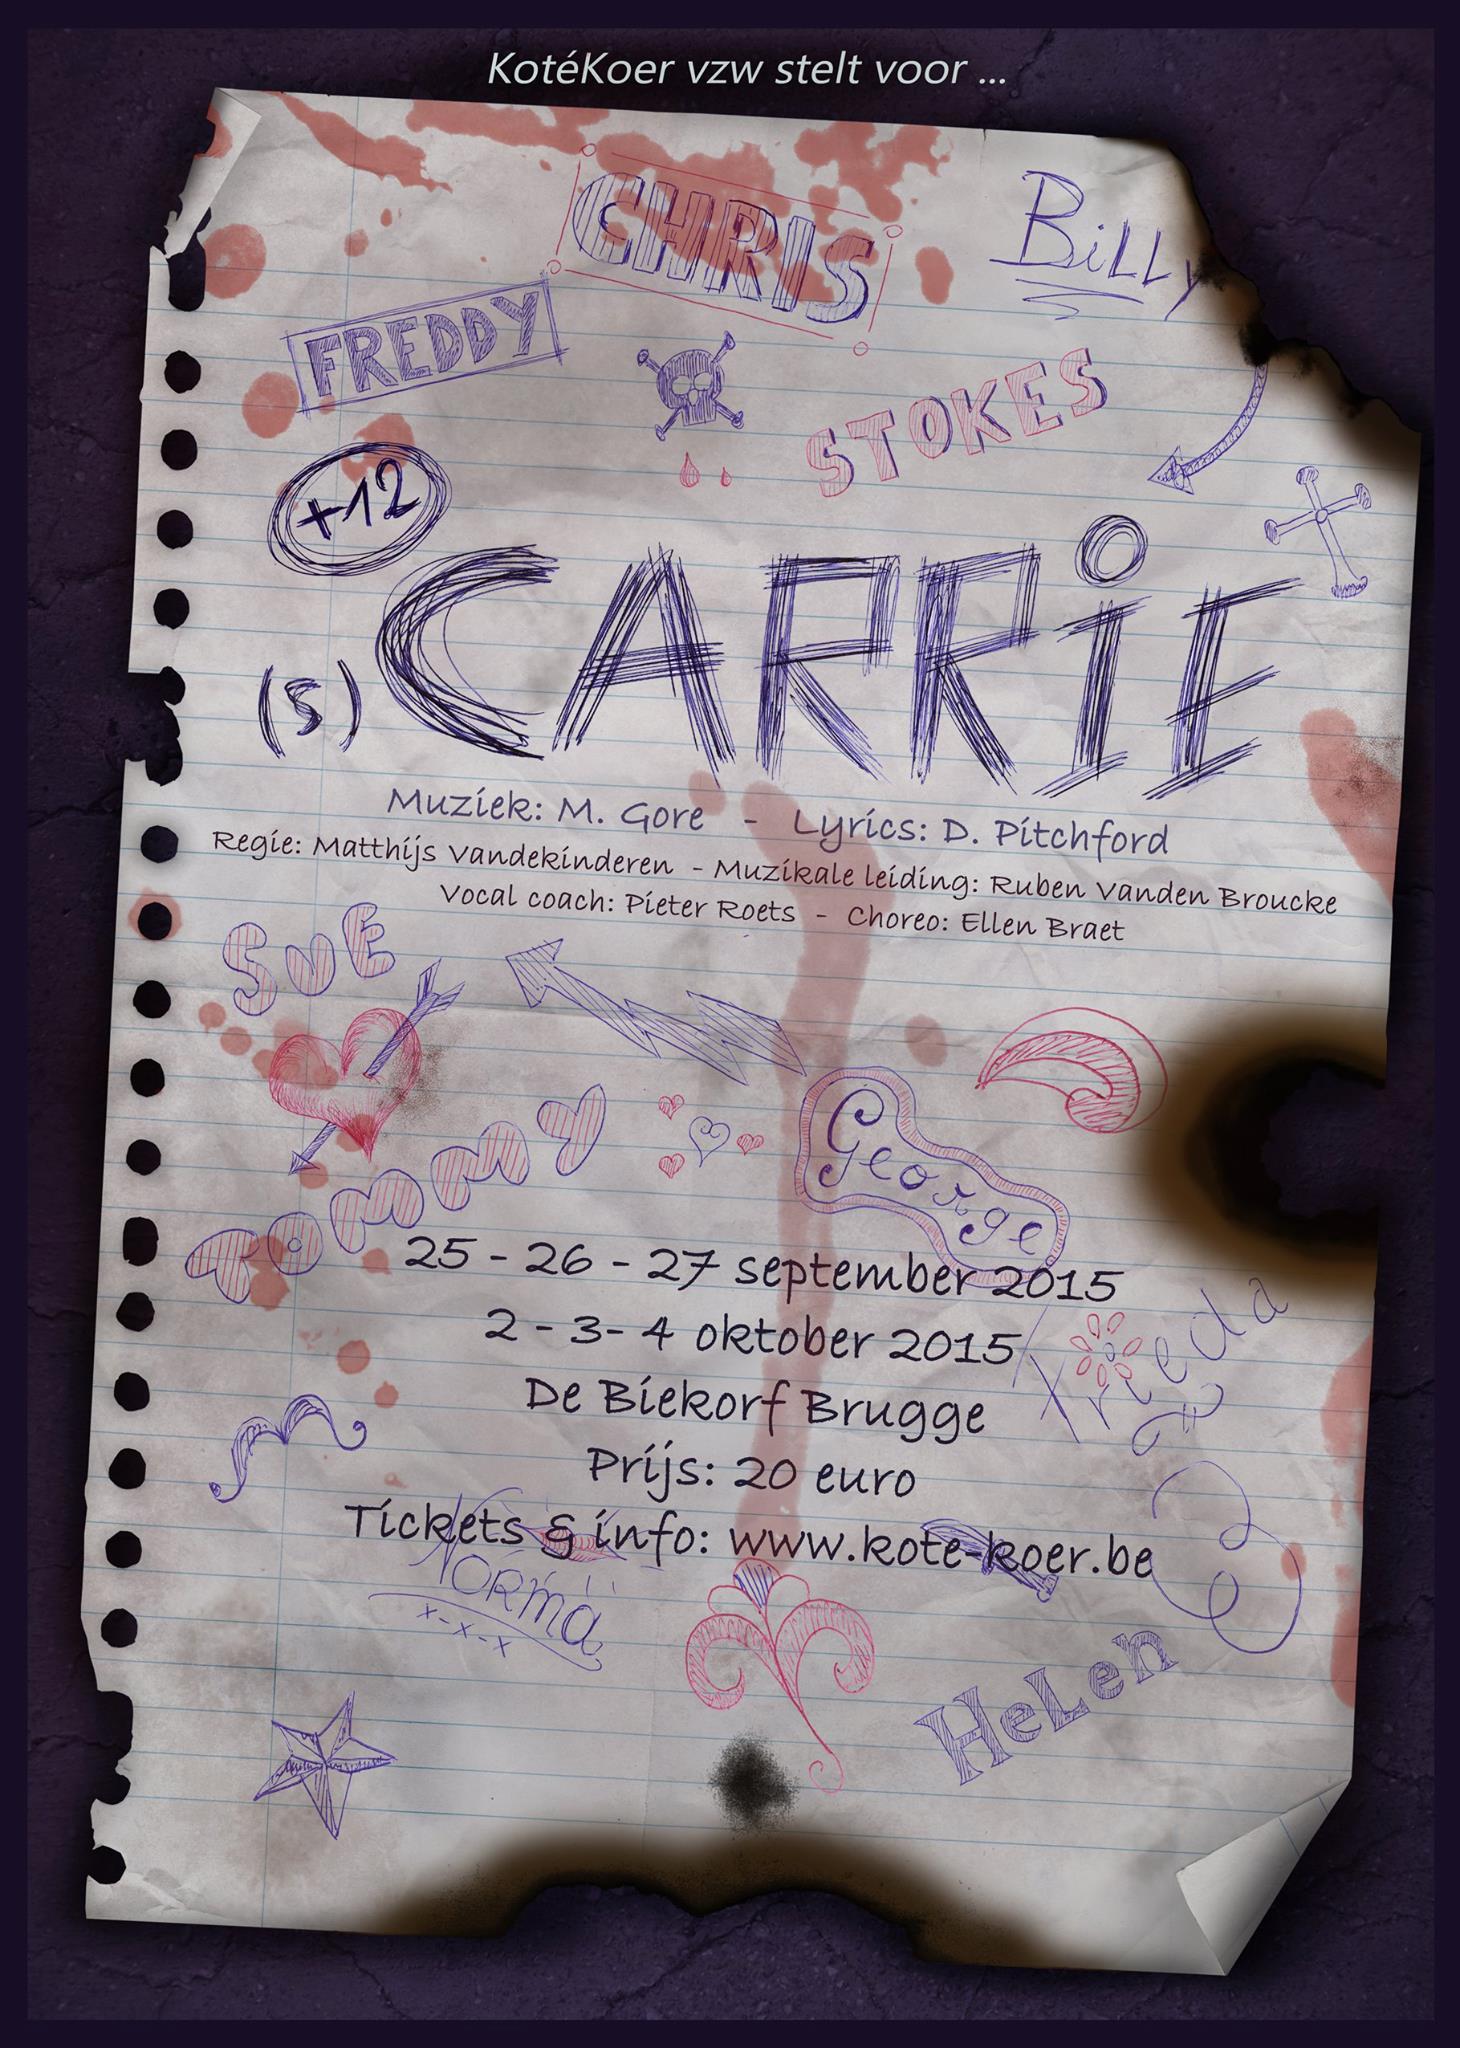 KotéKoer vzw stelt voor ...
CHRIS
BiLLy
FREDDY
STOKES
+12
(s) CARRiE
Muziek: M. Gore - Lyrics: D. Pitchford
Regie: Matthijs Vandekinderen - Muzikale leiding: Ruben Vanden Broucke
Vocal coach: Pieter Roets - Choreo: Ellen Braet
SuE
TOMMY
George
25 - 26 - 27 september 2015
2 - 3- 4 oktober 2015
Freda
De Biekorf Brugge
Prijs: 20 euro
Tickets & info: www.kote-koer.be
Norma
x-x-x
HeLen